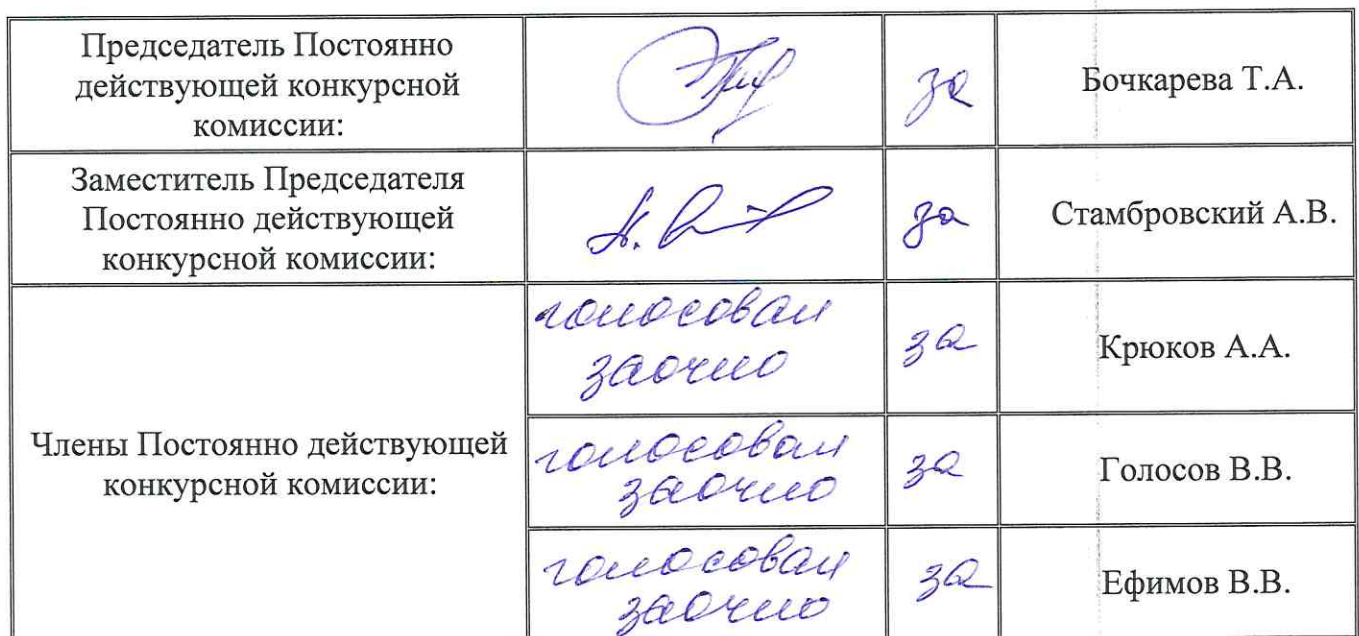 Председатель Постоянно
действующей конкурсной
комиссии:
за
Бочкарева Т.А.
Заместитель Председателя
Постоянно действующей
конкурсной комиссии:
за
Стамбровский А.В.
Члены Постоянно действующей
конкурсной комиссии:
голосовал
заочно
за
Крюков А.А.
голосовал
заочно
за
Голосов В.В.
голосовал
заочно
за
Ефимов В.В.